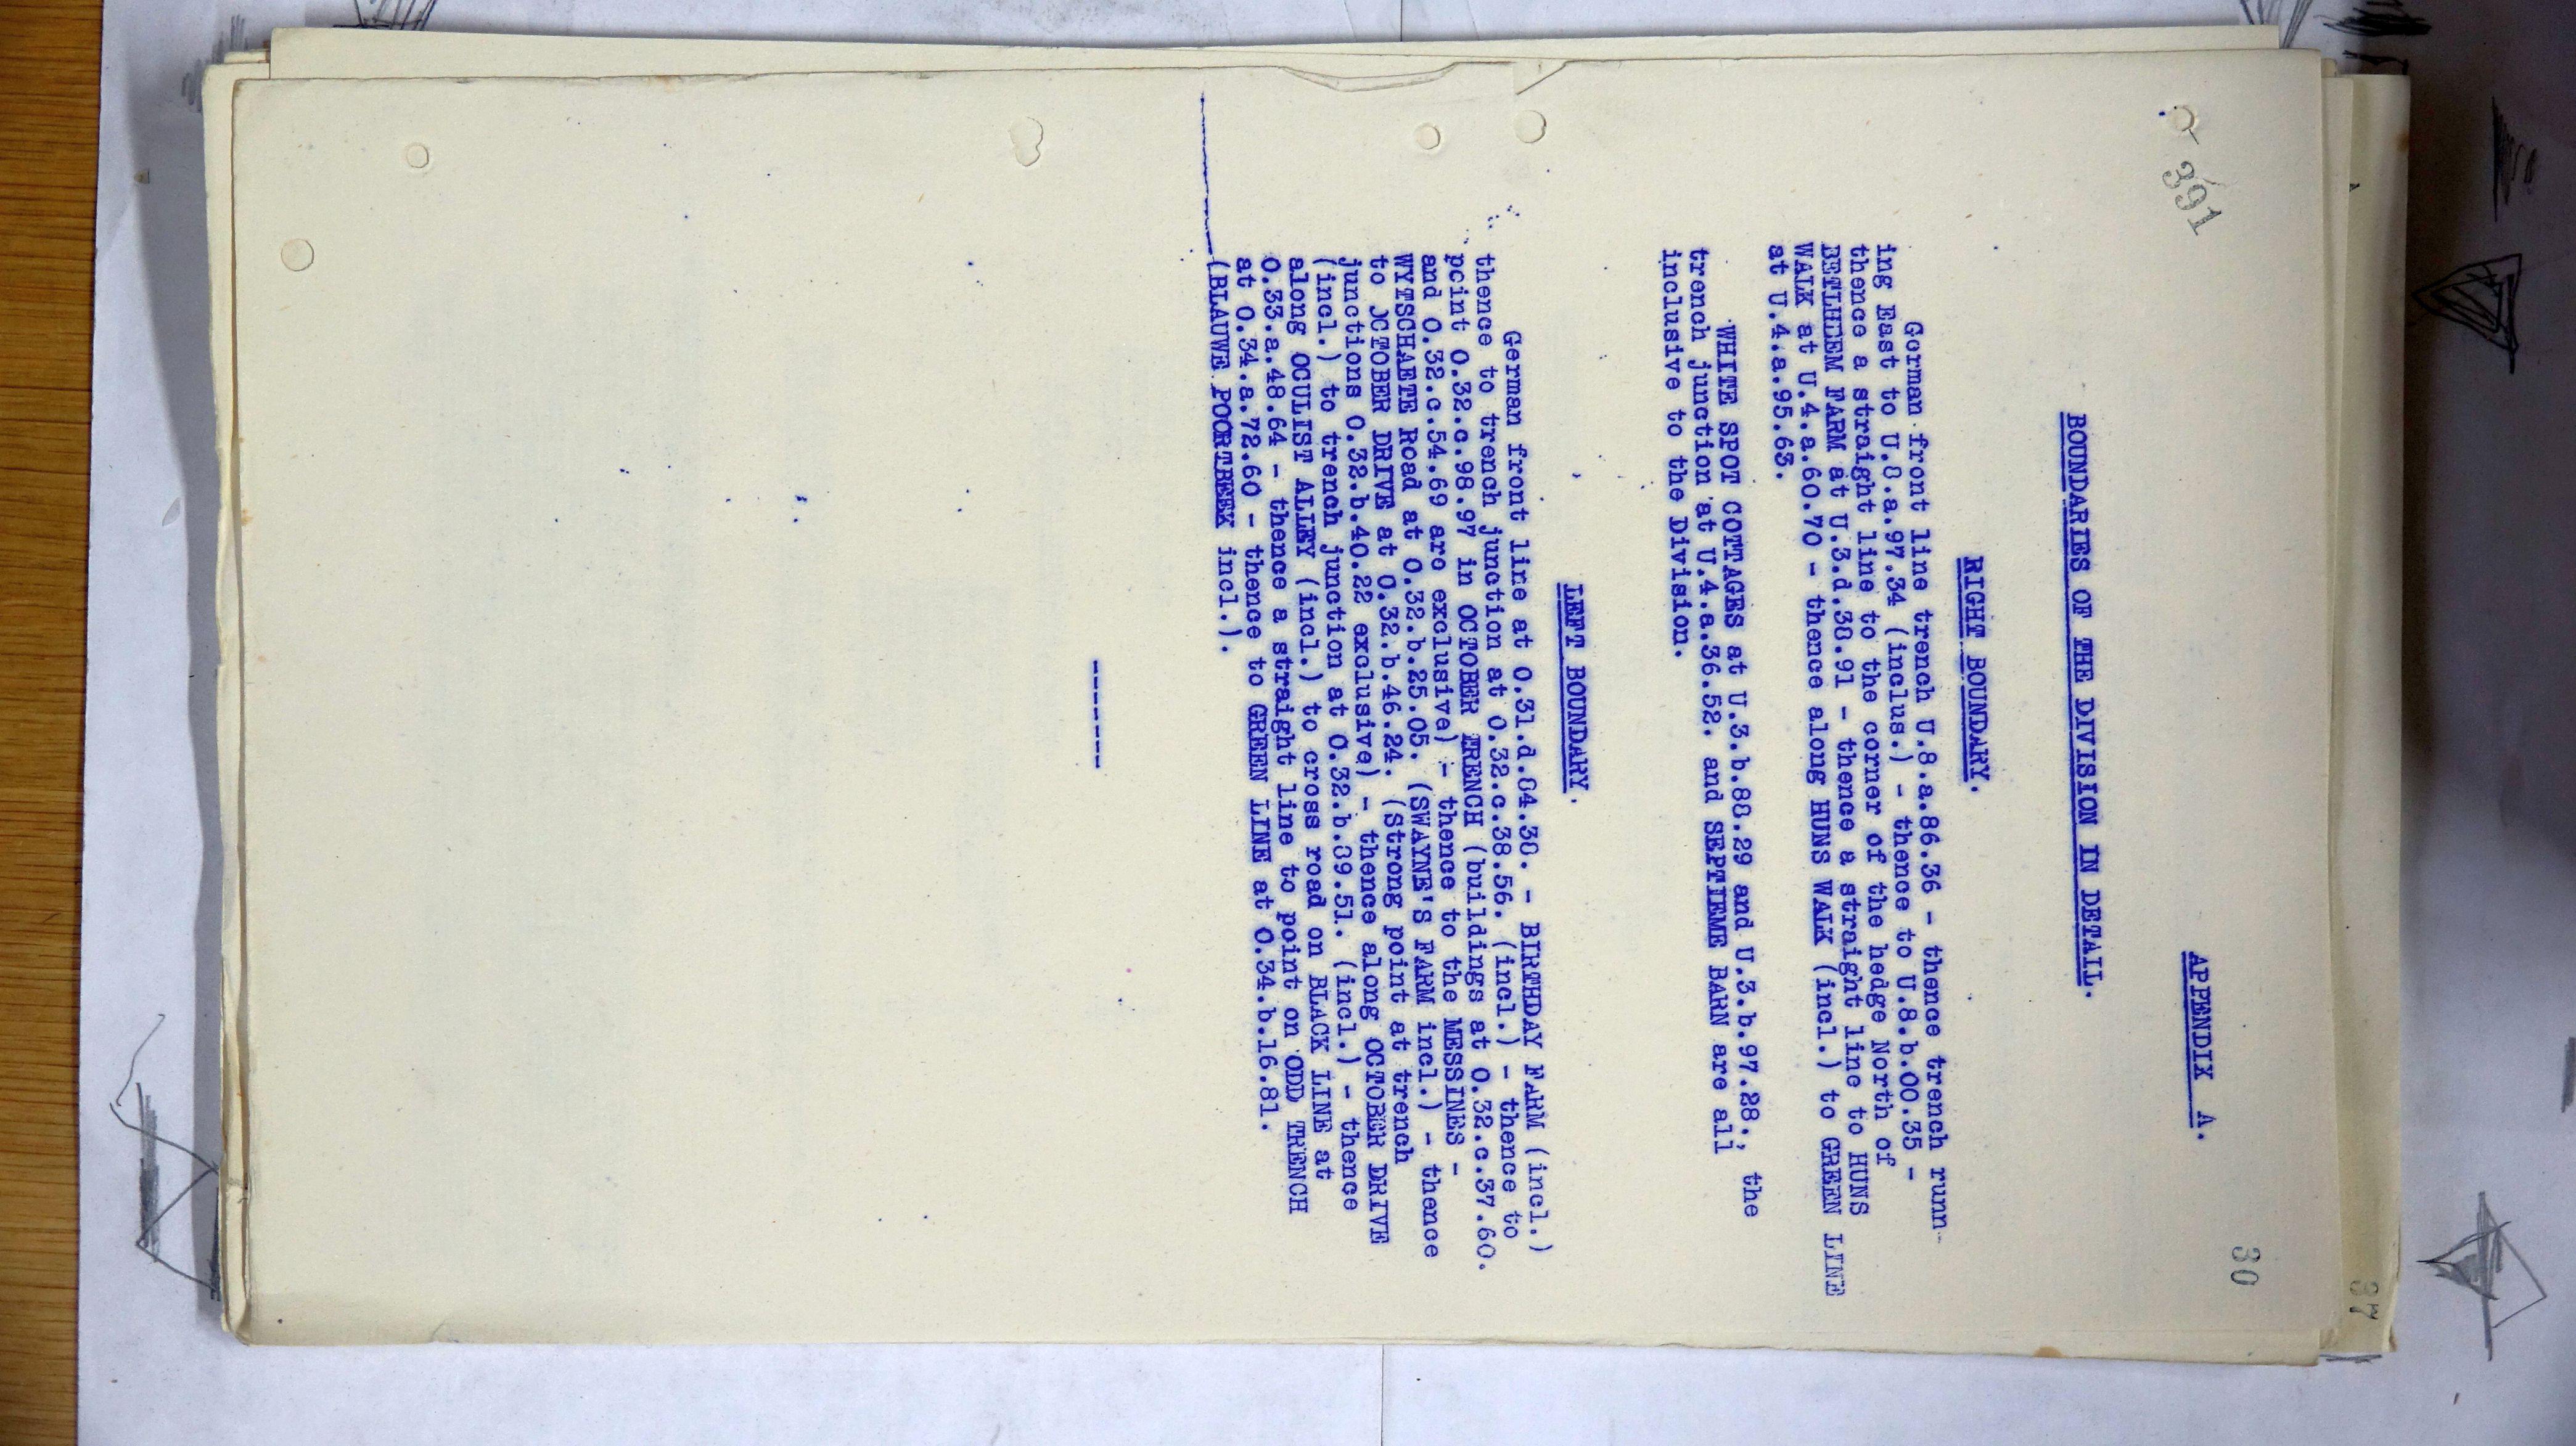 391
30
37
APPENDIX A.
BOUNDARIES OF THE DIVISION IN DETAIL.
RIGHT BOUNDARY.
German front line trench U.8.a.86.36 - thence trench runn-
ing East to U.8.a.97.34 (inclus.) - thence to U.8.b.00.35 -
thence a straight line to the corner of the hedge North of
BETHLEEM FARM at U.3.d.38.91 - thence a straight line to HUNS
WALK at U.4.a.60.70 - thence along HUNS WALK (incl.) to GREEN LINE
at U.4.a.95.63.
WHITE SPOT COTTAGES at U.3.b.88.29 and U.3.b.97.28.; the
trench junction at U.4.a.36.52. and SEPTIEME BARN are all
inclusive to the Division.
LEFT BOUNDARY.
German front line at O.31.d.84.30. - BIRTHDAY FARM (incl.)
thence to trench junction at O.32.c.38.56. (incl.) - thence to
point O.32.c.98.97 in OCTOBER TRENCH (buildings at O.32.c.37.60.
and O.32.c.54.69 are exclusive) - thence to the MESSINES -
WYTSCHAETE Road at O.32.b.25.05. (SWAYNE'S FARM incl.) - thence
to OCTOBER DRIVE at O.32.b.46.24. (Strong point at trench
junctions O.32.b.40.22 exclusive) - thence along OCTOBER DRIVE
(incl.) to trench junction at O.32.b.89.51. (incl.) - thence
along OCULIST ALLEY (incl.) to cross road on BLACK LINE at
O.33.a.48.64 - thence a straight line to point on ODD TRENCH
at O.34.a.72.60 - thence to GREEN LINE at O.34.b.16.81.
(BLAUWE POORTBEEK incl.).
-------